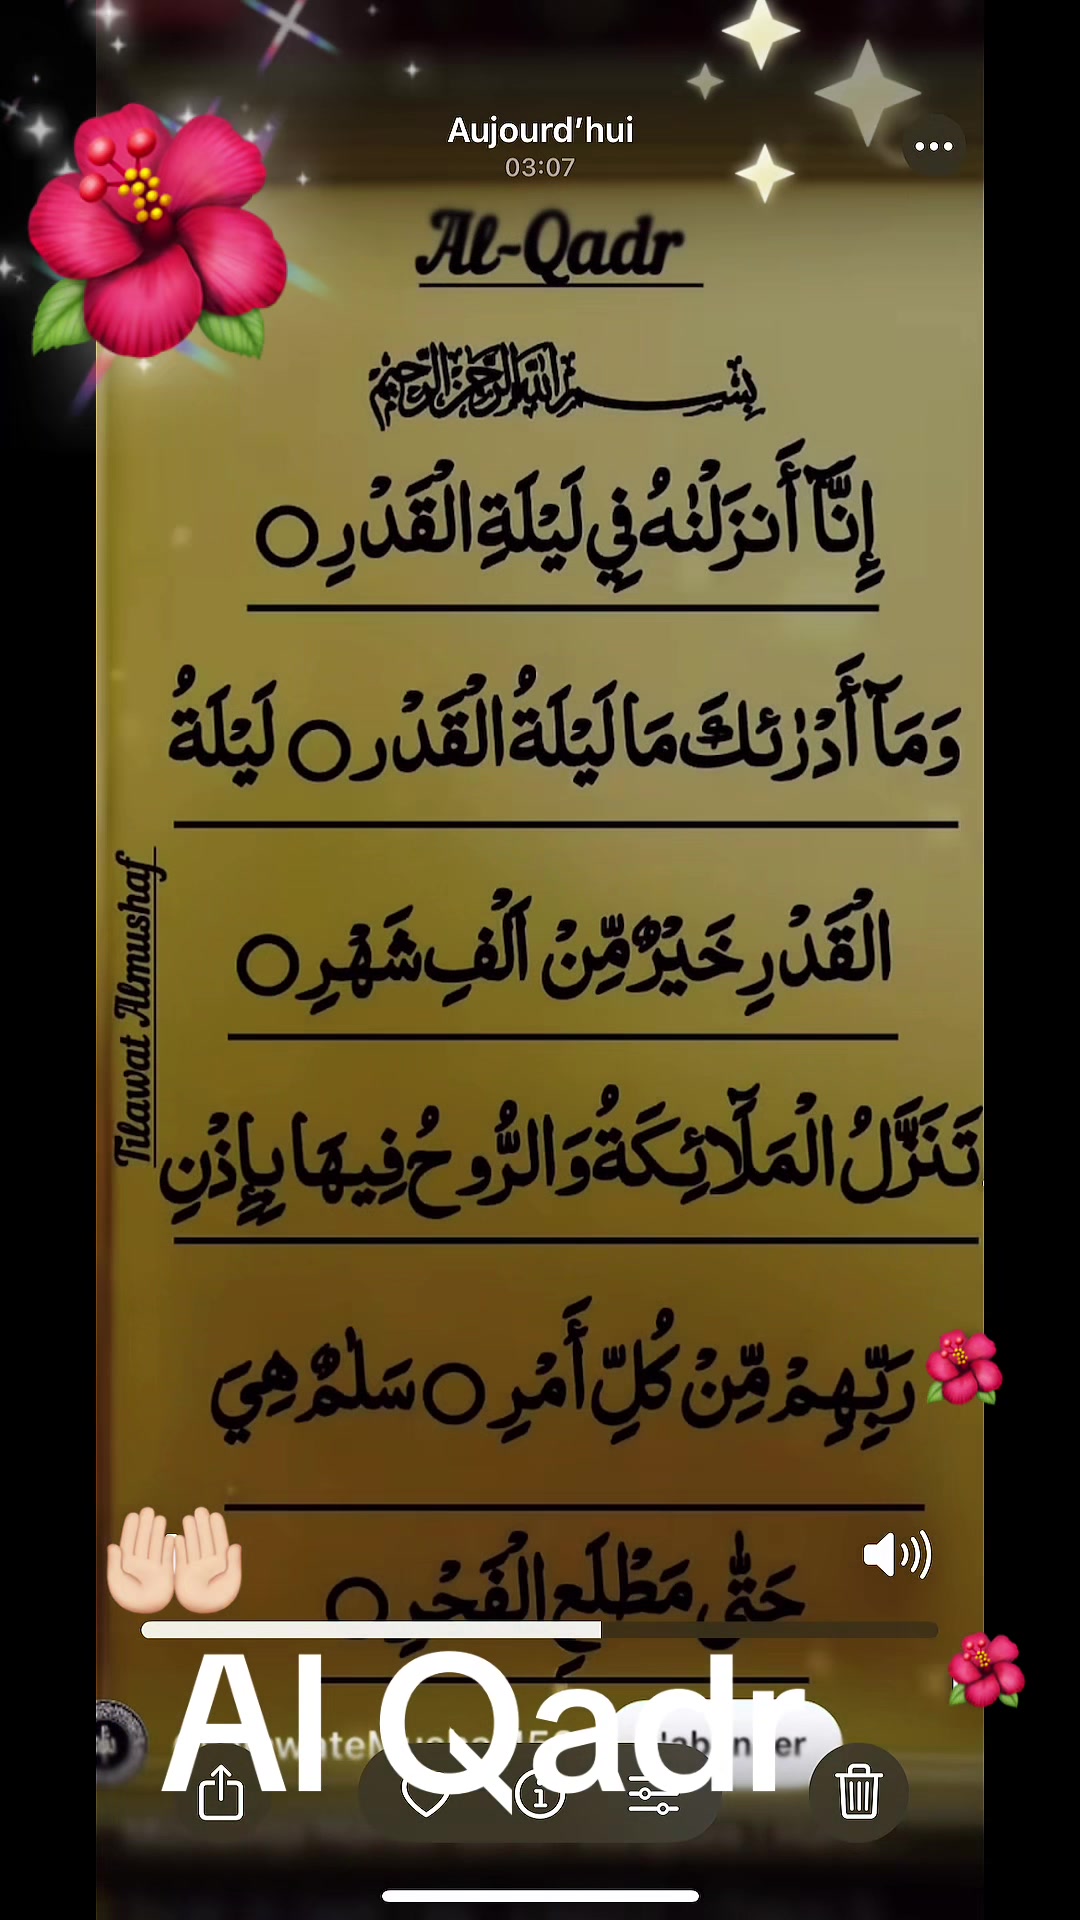 Aujourd'hui
03:07
Al-Qadr
بِسْمِ اللَّهِ الرَّحْمَنِ الرَّحِيمِ
إِنَّآ أَنزَلْنَٰهُ فِي لَيْلَةِ الْقَدْرِ ○
وَمَآ أَدْرَٰئكَ مَا لَيْلَةُ الْقَدْرِ ○ لَيْلَةُ
الْقَدْرِ خَيْرٌ مِّنْ أَلْفِ شَهْرٍ ○
تَنَزَّلُ الْمَلَٓائِكَةُ وَالرُّوحُ فِيهَا بِإِذْنِ
رَبِّهِمْ مِّنْ كُلِّ أَمْرٍ ○ سَلَٰمٌ هِيَ
حَتَّىٰ مَطْلَعِ الْفَجْرِ ○
Tilawat Almushaf
Al Qadr